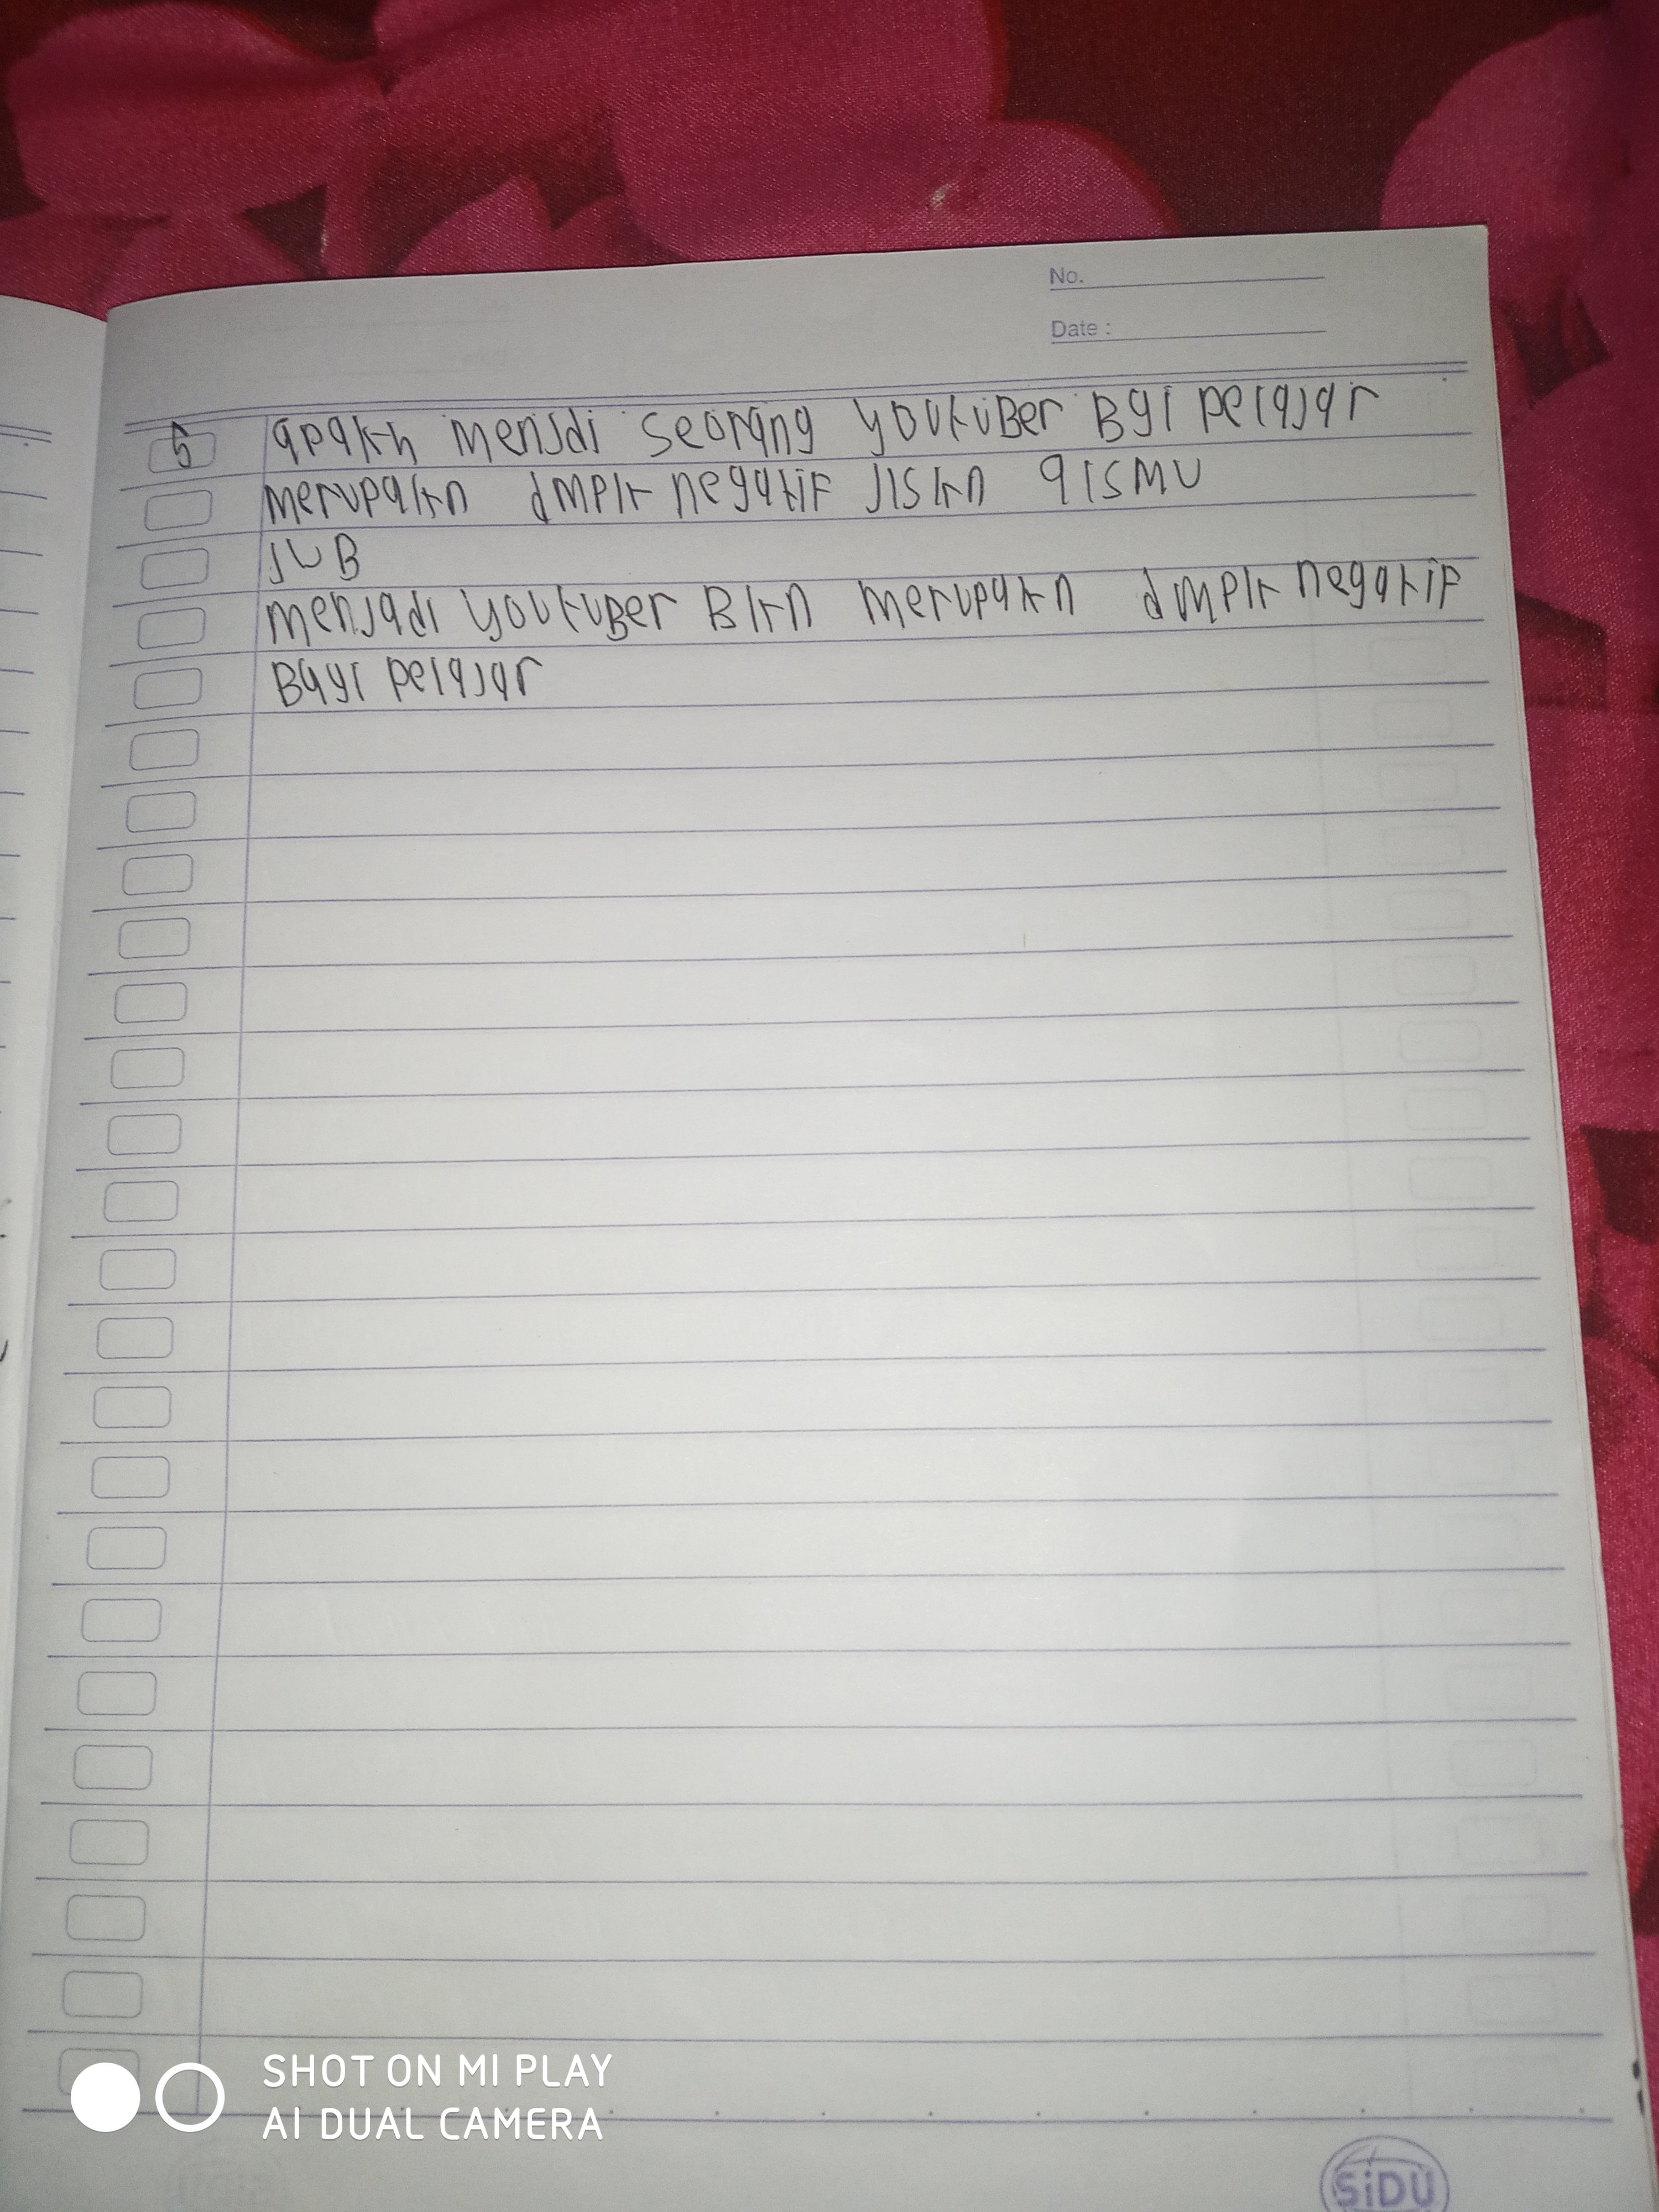 No.
Date :
5 apakh menjdi seorang youtuBer Bgi pelajar
merupakn dmpk negatif Jlskn alsmu
JWB
menjadi youtuBer Bkn merupakn dmpk negatif
Bagi pelajar
SHOT ON MI PLAY
AI DUAL CAMERA
SiDU